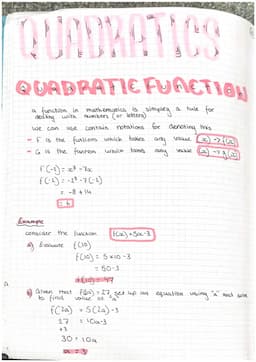 QUADRATICS
QUADRATIC FUNCTION
a function in mathematics is simpley a rule for
dealing with numbers (or letters)
we can use contain notations for denoting this
- F is the funtions which takes any value (x) -> f(x)
- G is the funtion which takes any value (x) -> g(x)
F(-2) = x² - 7x
f(-2) = -2² - 7(-2)
= -8 + 14
= 6
Example
consider the function f(x) = 5x-3
a) Evaluate f(10)
f(10) = 5 x 10 - 3
= 50 - 3
f(10) = 47
b) Given that f(2a) = 27 set up an equation using "a" and solve
to find value of "a"
f(2a) = 5(2a) - 3
27 = 10a - 3
+3
30 = 10a
a = 3